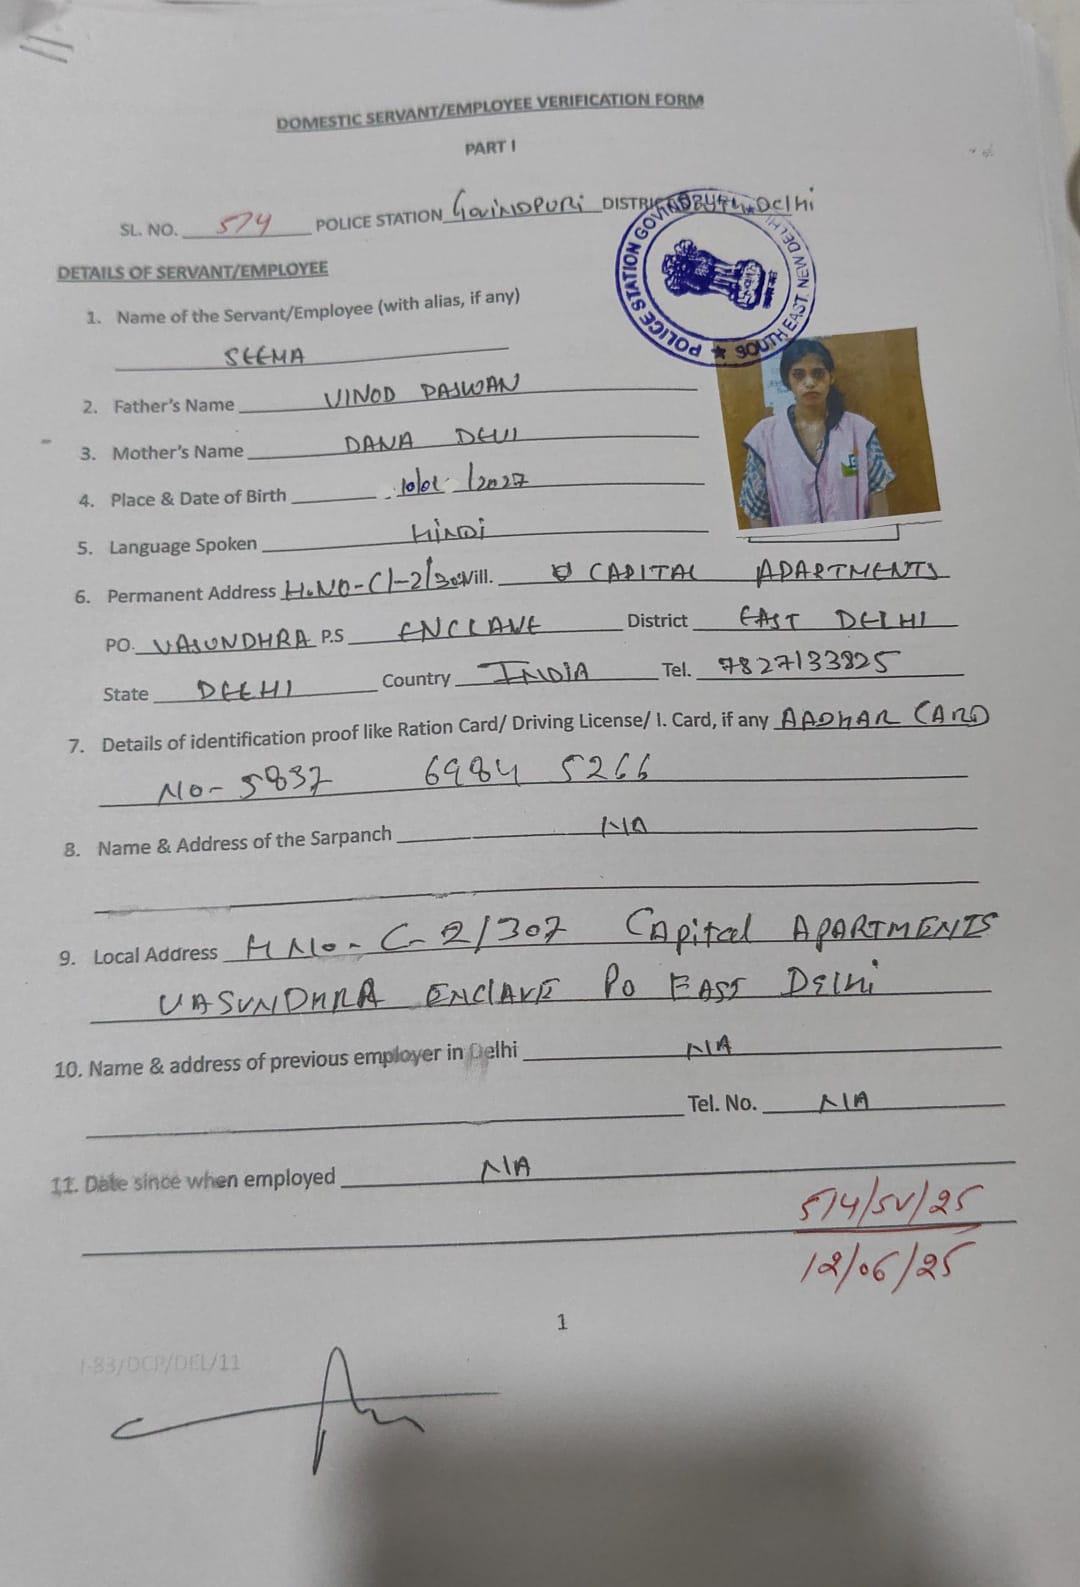 DOMESTIC SERVANT/EMPLOYEE VERIFICATION FORM
PART I
SL. NO. 574 POLICE STATION GovinDPuRi DISTRICT Delhi
POLICE STATION GOVINDPURI ★ SOUTH EAST. NEW DELHI
DETAILS OF SERVANT/EMPLOYEE
1. Name of the Servant/Employee (with alias, if any)
SEEMA
2. Father's Name VINOD PASWAN
3. Mother's Name DANA DEVI
4. Place & Date of Birth /2027
5. Language Spoken HiNDi
6. Permanent Address H.NO-C1-2/ Vill. CAPITAL APARTMENTS
PO. VASUNDHRA P.S ENCLAVE District EAST DELHI
State DELHI Country INDIA Tel. 7827133825
7. Details of identification proof like Ration Card/ Driving License/ I. Card, if any AADHAR CARD
No- 5837 6984 5266
8. Name & Address of the Sarpanch N/A
9. Local Address H No- C-2/307 CApital APARTMENTS
VASUNDHRA ENCLAVE Po EAST Delhi
10. Name & address of previous employer in Delhi N/A
Tel. No. N/A
11. Date since when employed N/A
574/SV/25
12/06/25
1
I-83/DCP/DEL/11